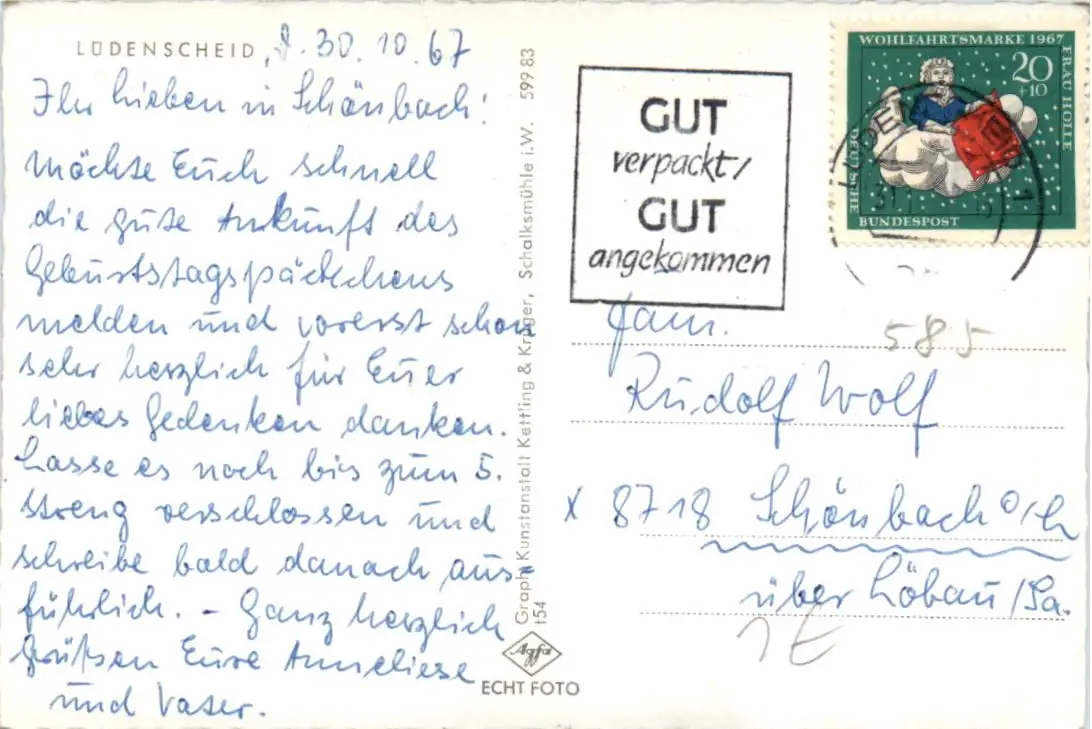 LÜDENSCHEID, d. 30.10.67
Ihr Lieben in Schönbach!
Möchte Euch schnell
die gute Ankunft des
Geburtstagspäckchens
melden und vorerst schon
sehr herzlich für Euer
liebes Gedenken danken.
Lasse es noch bis zum 5.
streng verschlossen und
schreibe bald danach aus=
führlich. – Ganz herzlich
Grüßen Eure Anneliese
und Vater.
Graph. Kunstanstalt Kettling & Krüger, Schalksmühle i.W. 599 83
t54
Agfa
ECHT FOTO
GUT
verpackt/
GUT
angekommen
WOHLFAHRTSMARKE 1967
20
+10
FRAU HOLLE
DEUTSCHE
BUNDESPOST
Fam.
585
Rudolf Wolf
x 8718 Schönbach
über Löbau/Sa.